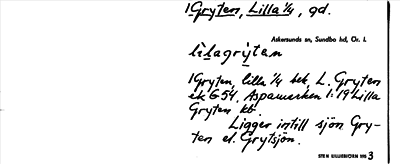 1Gryten, Lilla 1/4, gd.
Askersunds sn, Sundbo hd, Ör. l.
lilagrÿten
1Gryten, lilla 1/4 bek, L. Gryten
ek G 54, Aspamarken 1:19 Lilla
Gryten kb.
Ligger intill sjön Gry-
ten el. Grytsjön.
STEN LILLIEBJÖRN 193